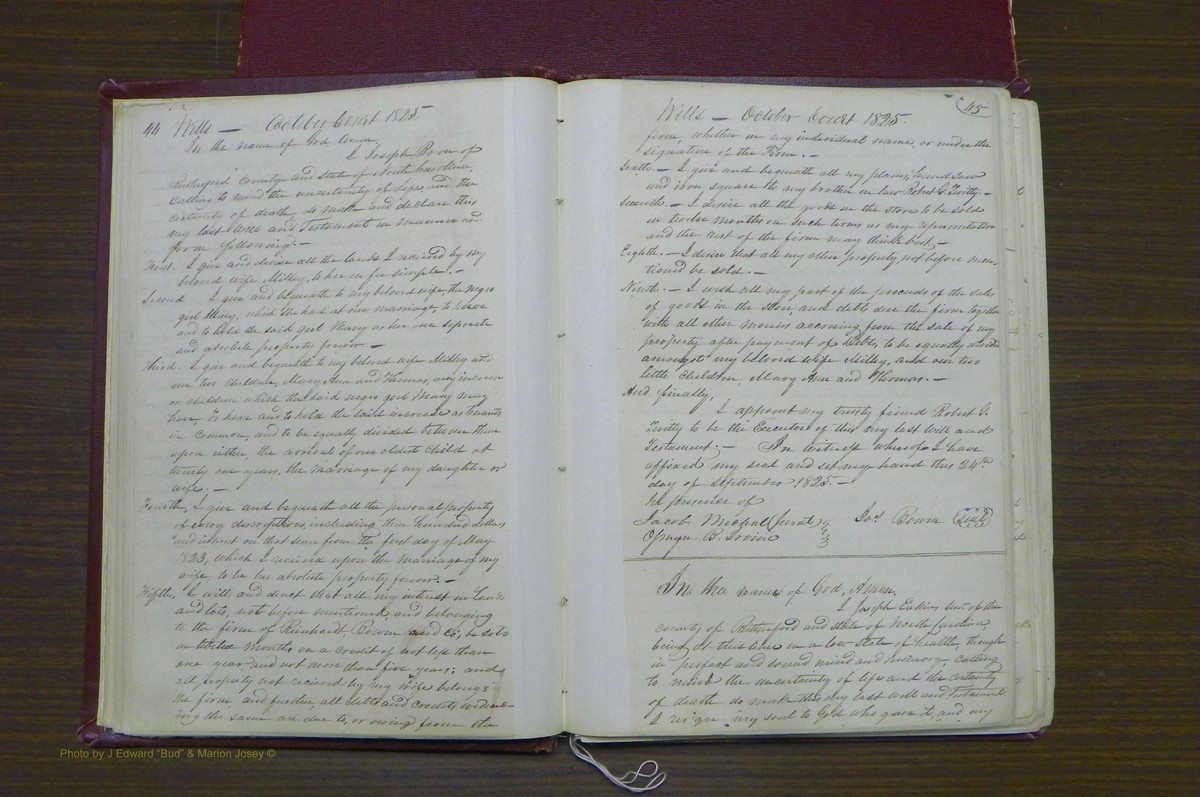 44 Wills — October Court 1825
In the name of God Amen.
I Joseph Bowen of
Rutherford County and State of North Carolina,
Calling to mind the uncertainty of life, and the
certainty of death, do make and declare this
my last Will and Testament in manner and
form following. —
First. I give and devise all the lands I received by my
beloved wife Milley, to her in fee simple. —
Second I give and bequeath to my beloved wife, the negro
girl Mary, which she had at our marriage, to have
and to hold the said girl Mary as her own separate
and absolute property forever. —
Third. I give and bequeath to my beloved wife Milley and
our two children, Mary Ann and Thomas, any increase
or children which the said negro girl Mary may
have, To have and to hold the said increase as tenants
in common, and to be equally divided between them
upon either, the arrival of our oldest child at
twenty one years, the marriage of my daughter or
wife. —
Fourth, I give and bequeath all the personal property
of every description, including three hundred dollars
and interest on that sum from the first day of May
1823, which I received upon the marriage of my
wife, to be her absolute property forever. —
Fifth, I will and direct that all my interest in Land
and lots, not before mentioned, and belonging
to the firm of Reinhardt, Bowen and Co, be sold
in twelve months on a credit of not less than
one year and not more than five years; and
all property not received by my wife belongs
the firm and further, all debts and credits
the same are due to, or owing from the
Wills — October Court 1825 45
firm, whether in my individual name, or under the
signature of the Firm. —
Sixth — I give and bequeath all my plains, hand saw
and iron square to my brother in law Robert G. Twitty —
Seventh. — I desire all the goods in the store to be sold
in twelve months on such terms as my representative
and the rest of the firm may think best, —
Eighth. — I desire that all my other property not before men-
tioned be sold. —
Ninth. — I wish all my part of the proceeds of the sales
of goods in the store, and debts due the firm together
with all other monies accruing from the sale of my
property after payment of Debts, to be equally
amongst my beloved wife Milley, and our two
little children, Mary Ann and Thomas. —
And finally,
I appoint my trusty friend Robert G.
Twitty to be the Executor of this my last Will and
Testament. — In witness whereof I have
affixed my seal and set my hand this 24th
day of September 1825. —
In presence of
Jacob Michal (Jurat) Jos. Bowen Seal
B.
In the name of God, Amen,
I Joseph Eakin Senr. of the
county of Rutherford and state of North Carolina,
being at this time in a low state of health, though
in perfect and sound mind and memory calling
to mind the uncertainty of life and the certainty
of death do make this my last will and testament.
I resign my soul to God who gave it, and my
Photo by J Edward "Bud" & Marion Josey ©